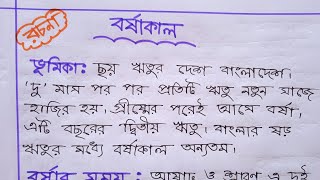 রচনা
বর্ষাকাল
ভূমিকা: ছয় ঋতুর দেশ বাংলাদেশ।
'দু' মাস পর পর প্রতিটি ঋতু নতুন সাজে
হাজির হয়। গ্রীষ্মের পরেই আসে বর্ষা,
এটি বছরের দ্বিতীয় ঋতু। বাংলার ষড়
ঋতুর মধ্যে বর্ষাকাল অন্যতম।
বর্ষার সময়: আষাঢ় ও শ্রাবণ এ দুই